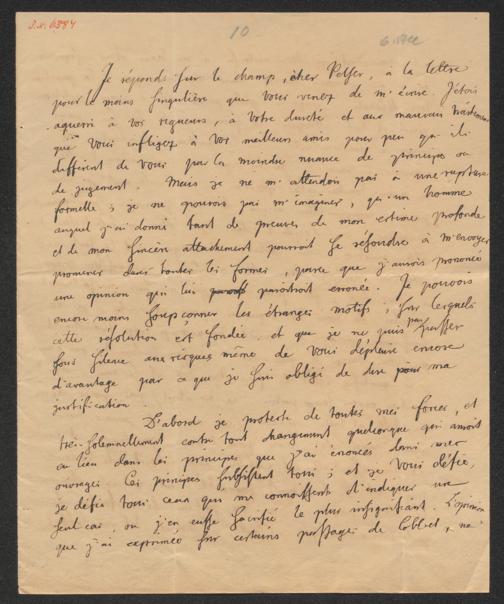 J.N. 6884
10
6. Dec
Je réponds sur le champ, cher Pelser, à la lettre
pour le moins singulière que vous venez de m'écrire. J'étois
aguerri à vos rigueurs, à votre dureté et aux mauvais traitemens
que vous infligez à vos meilleurs amis pour peu qu'ils
différent de vous par la moindre nuance de principes ou
de jugement. Mais je ne m'attendois pas à une rupture
formelle; je ne pouvois pas m'imaginer, qu'un homme
auquel j'ai donné tant de preuves de mon estime profonde
et de mon sincère attachement pourroit se résoudre à m'envoyer
promener dans toutes les formes, parce que j'aurois prononcé
une opinion qui lui paroîtroit erronée. Je pouvois
encore moins soupçonner les étranges motifs, sur lesquels
cette résolution est fondée, et que je ne puis pas passer
sous silence aux risques même de vous déplaire encore
d'avantage par ce que je suis obligé de dire pour ma
justification.
D'abord je proteste de toutes mes forces, et
très-solemnellement contre tout changement quelconque qui auroit
eu lieu dans les principes que j'ai énoncés dans mes
ouvrages. Ces principes subsistent tous; et je vous défie,
je défie tous ceux qui me connoissent d'indiquer un
seul cas, où j'en eusse sacrifié le plus insignifiant. L'opinion
que j'ai exprimée sur certains passages de Cobbet, ne